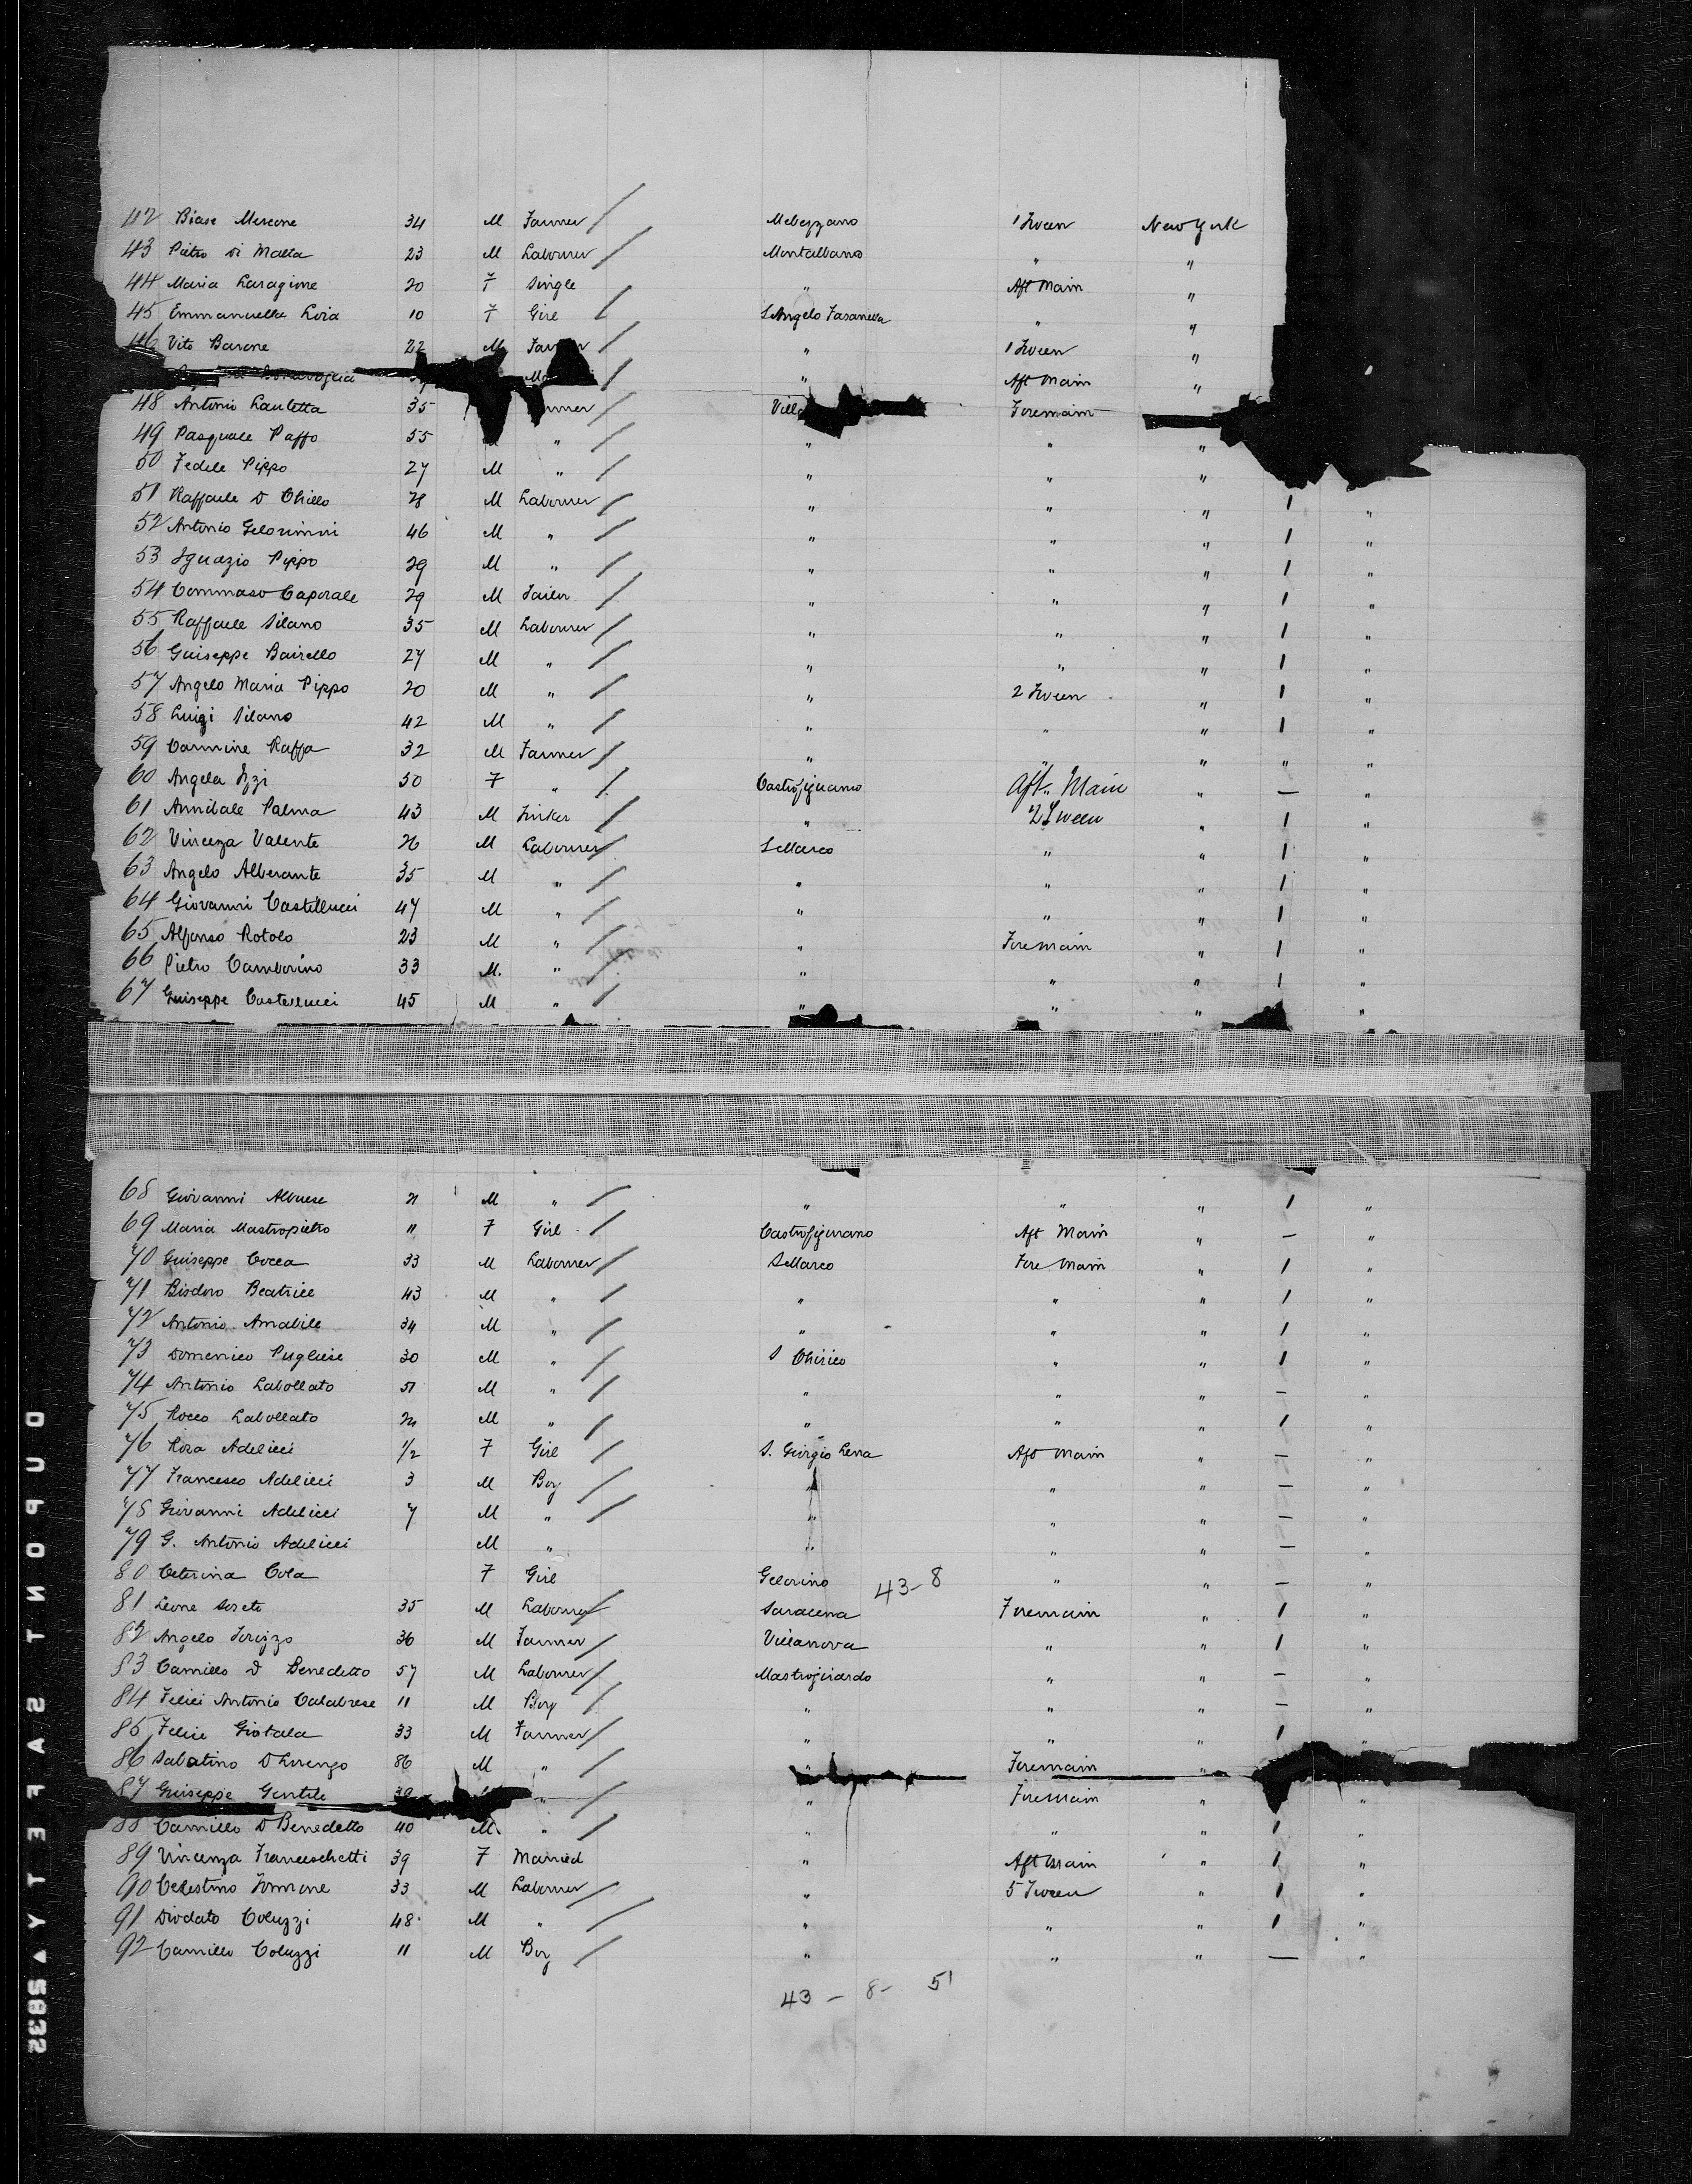 42 Biase Mercone 34 M Farmer / Melezzano 1 Tween New York
43 Pietro Di Matta 23 M Labourer / Montalbano " "
44 Maria Laragione 20 F Single " Aft Main "
45 Emmanuella Loia 10 F Girl / S Angelo Fasanella " "
46 Vito Barone 22 M / " 1 Tween "
/ " Aft Main "
48 Antonio Lauletta 35 Foremain
49 Pasquale Paffo 55 " / " " "
50 Fedele Pippo 27 M " / " " "
51 Raffaele D Chiello 28 M Labourer / " " " 1 "
52 Antonio Gelormini 46 M " / " " " 1 "
53 Ignazio Pippo 29 M " / " " " 1 "
54 Commaso Caporale 29 M Tailor / " " " 1 "
55 Raffaele Silano 35 M Labourer / " " " 1 "
56 Guiseppe Bairello 27 M " / " " " 1 "
57 Angelo Maria Pippo 20 M " / " 2 Tween " 1 "
58 Luigi Silano 42 M " / " " " 1 "
59 Carmine Raffa 32 M Farmer / " " " " "
60 Angela Izzi 50 F " / Castrofignano Aft. Main " — "
61 Annibale Palma 43 M / " 2 Tween " 1 "
62 Vincenza Valente 26 M Labourer / S Marco " " 1 "
63 Angelo Alberante 35 M " / " " " 1 "
64 Giovanni Castellucci 47 M " / " " " 1 "
65 Alfonso Rotolo 23 M " / " Foremain " 1 "
66 Pietro Camborino 33 M. " / " " " 1 "
67 Guiseppe Castellucci 45 M " / " " " "
68 Giovanni Albuese 21 M " / " " " 1 "
69 Maria Mastropietro 11 F Girl / Castrofignano Aft Main " — "
70 Guiseppe Cocca 33 M Labourer / S Marco Fore Main " 1 "
71 Bisdoro Beatrice 43 M " / " " " 1 "
72 Antonio Amabile 34 M " / " " " 1 "
73 Domenico Pugliese 30 M " / S Chirico " " 1 "
74 Antonio Labollato 51 M " / " " " — "
75 Rocco Labollato 24 M " / " " " 1 "
76 Rosa Adelicci 1/2 F Girl / S. Giorgio Aft Main " — "
77 Francesco Adelicci 3 M Boy / " " " — "
78 Giovanni Adelicci 7 M " / " " " — "
79 G. Antonio Adelicci M " " " " — "
80 Ceterina Cola F Girl Gelorino 43-8 " " — "
81 Leone Soreto 35 M Labourer / Saracena Foremain " 1 "
82 Angelo 36 M Farmer / Villanova " " 1 "
83 Camillo D Benedetto 57 M Labourer / " " — "
84 Felici Antonio Calabrese 11 M Boy / " " " — "
85 Felice Giotala 33 M Farmer / " " " 1 "
86 Sabatino D Lorenzo 86 M " / " Foremain "
87 Guiseppe Gentile " / " Foremain " "
88 Camillo D Benedetto 40 M. " / " " " 1 "
89 Vincenza Franceschetti 39 F Married " Aft Main " 1 "
90 Celestino Iommone 33 M Labourer / " 5 Tween " 1 "
91 Diodato Coluzzi 48 M " / " " " 1 "
92 Camillo Coluzzi 11 M Boy / " " " — "
43 — 8 - 51
DUPONT SAFETY ▲ 5832